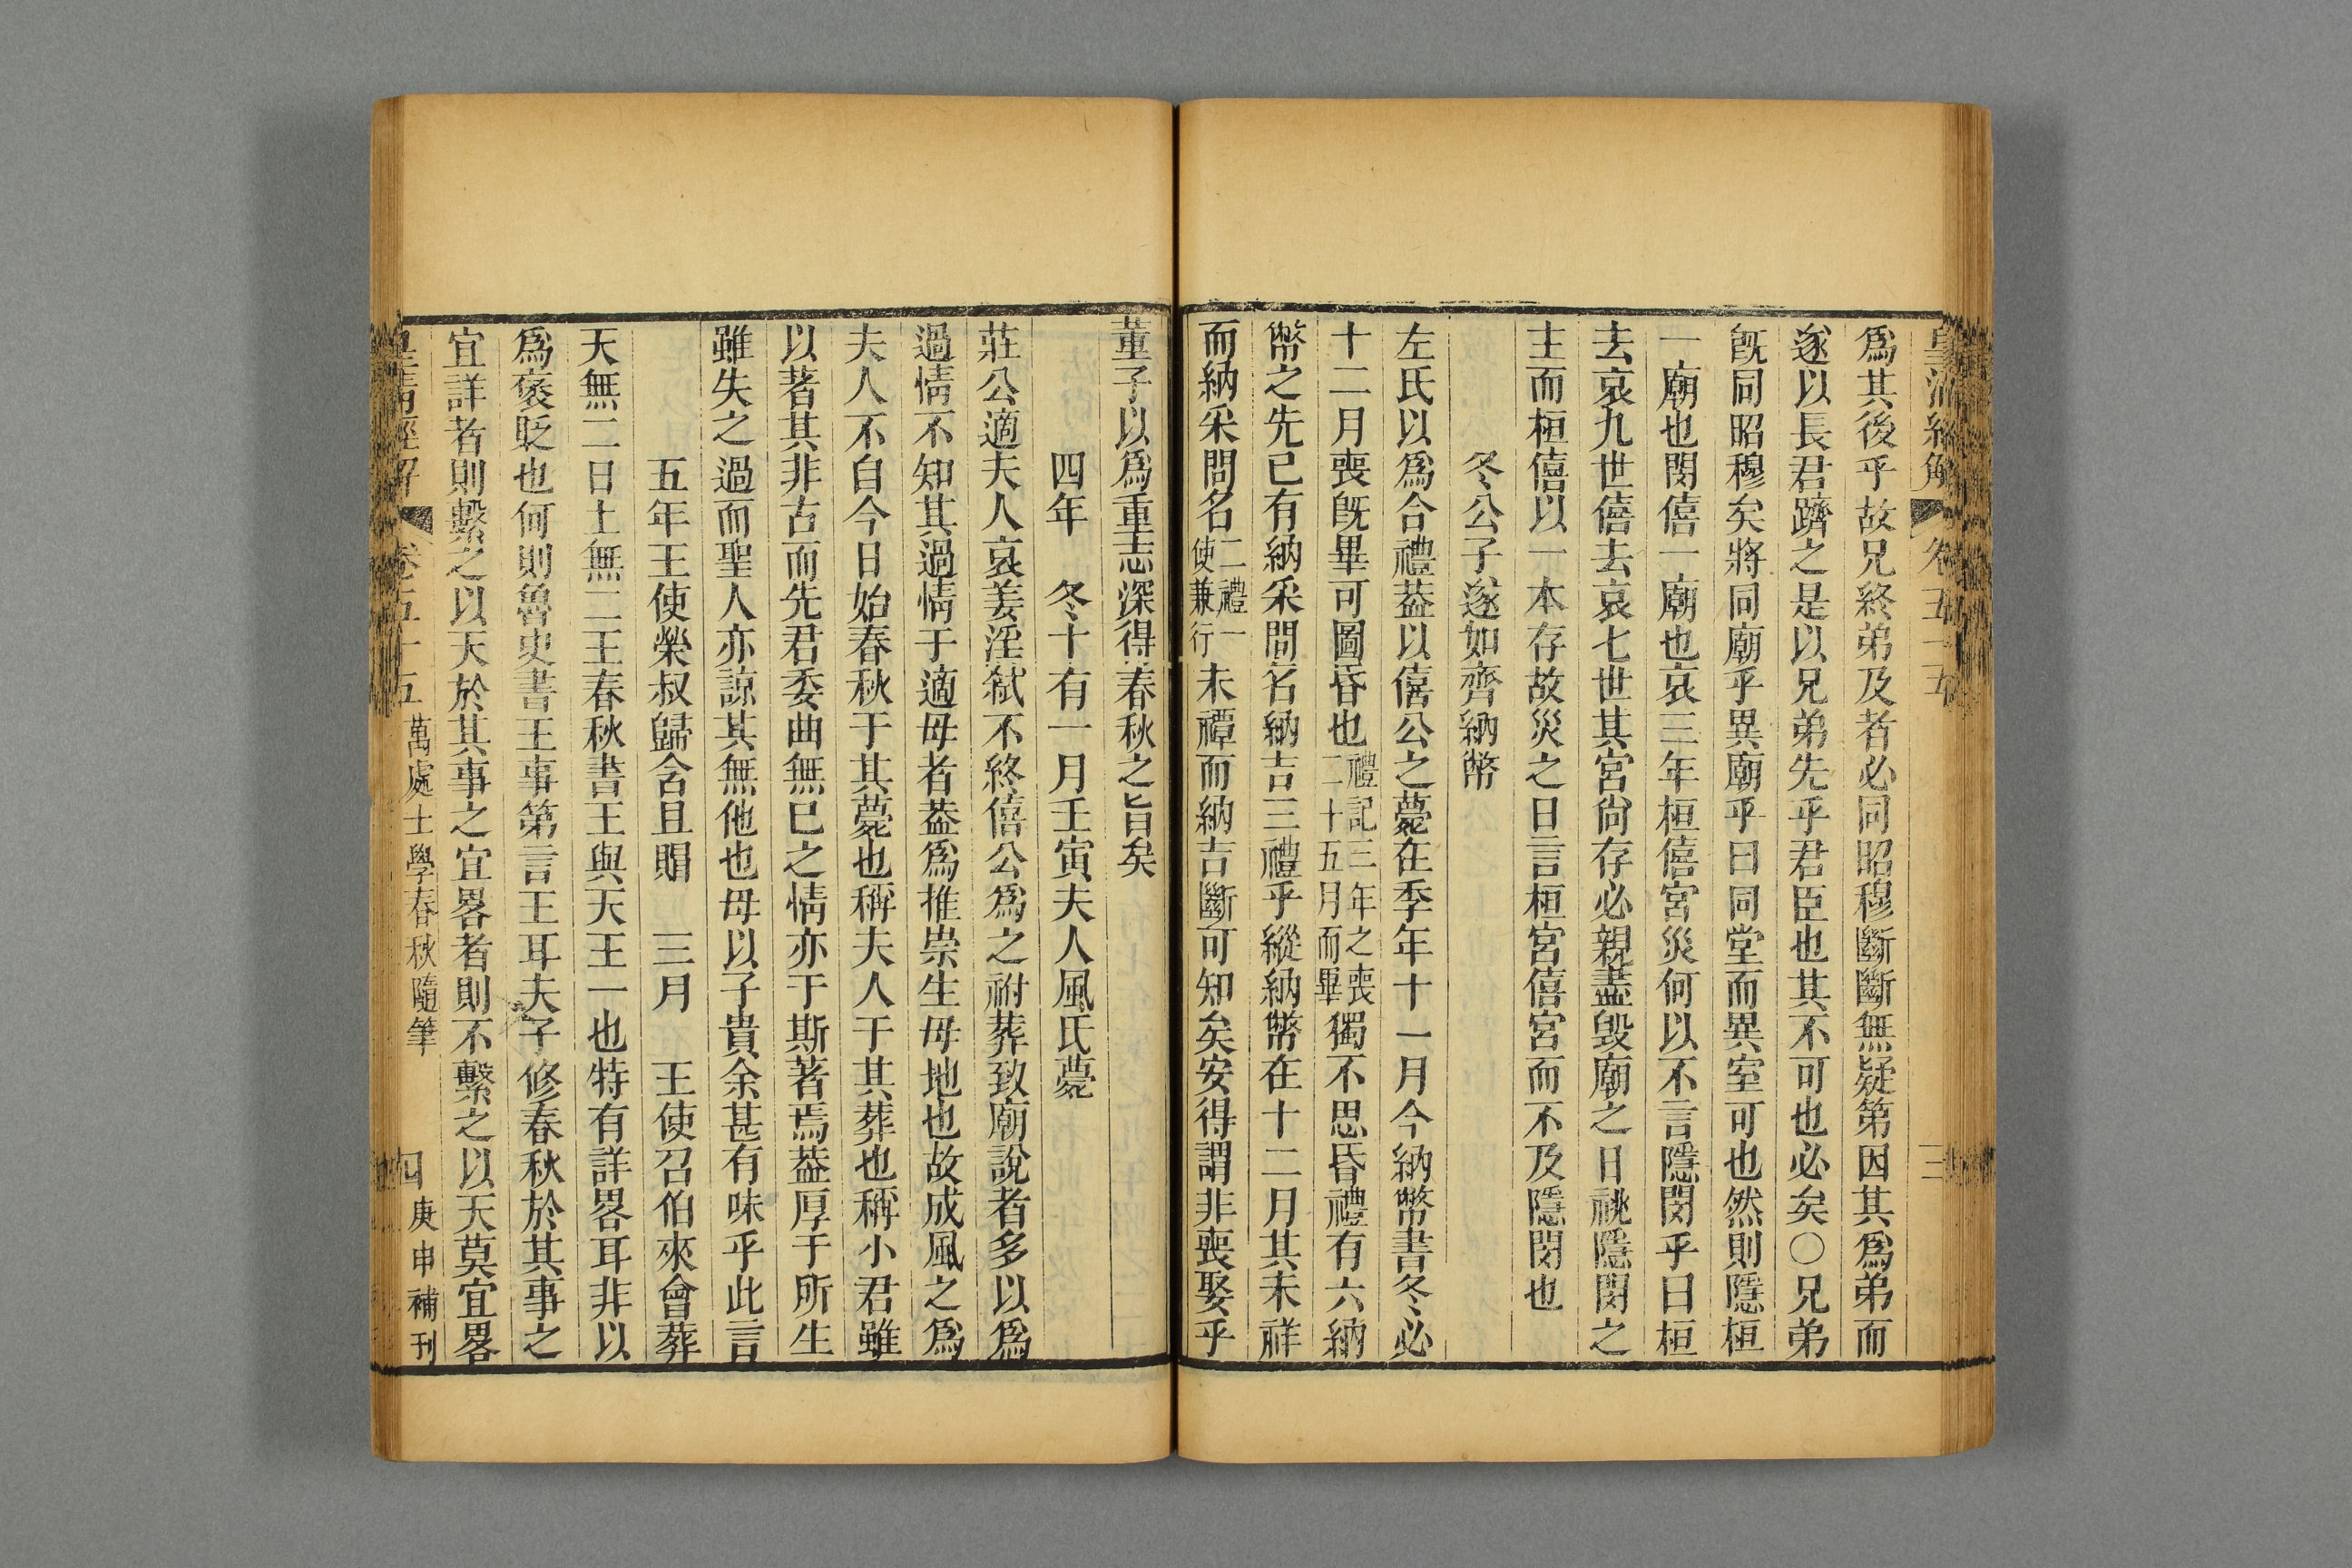 皇清經解 卷五十五 三
爲其後乎故兄終弟及者必同昭穆斷斷無疑第因其爲弟而
遂以長君躋之是以兄弟先乎君臣也其不可也必矣〇兄弟
旣同昭穆矣將同廟乎異廟乎曰同堂而異室可也然則隱桓
一廟也閔僖一廟也哀三年桓僖宮災何以不言隱閔乎曰桓
去哀九世僖去哀七世其宮尙存必親盡毀廟之日祧隱閔之
主而桓僖以一本存故災之日言桓宮僖宮而不及隱閔也
冬公子遂如齊納幣
左氏以爲合禮葢以僖公之薨在季年十一月今納幣書冬必
十二月喪旣畢可圖昏也禮記三年之喪二十五月而畢獨不思昏禮有六納
幣之先已有納采問名納吉三禮乎縱納幣在十二月其未祥
而納采問名二禮一使兼行未禫而納吉斷可知矣安得謂非喪娶乎
董子以爲重志深得春秋之旨矣
四年 冬十有一月壬寅夫人風氏薨
莊公適夫人哀姜淫弒不終僖公爲之祔葬致廟說者多以爲
過情不知其過情于適母者葢爲推崇生母地也故成風之爲
夫人不自今日始春秋于其薨也稱夫人于其葬也稱小君雖
以著其非古而先君委曲無已之情亦于斯著焉葢厚于所生
雖失之過而聖人亦諒其無他也母以子貴余甚有味乎此言
五年王使榮叔歸含且賵 三月 王使召伯來會葬
天無二日土無二王春秋書王與天王一也特有詳畧耳非以
爲褒貶也何則魯史書王事第言王耳夫子修春秋於其事之
宜詳者則繫之以天於其事之宜畧者則不繫之以天莫宜畧
皇清經解 卷五十五 萬處士學春秋隨筆 四 庚申補刊